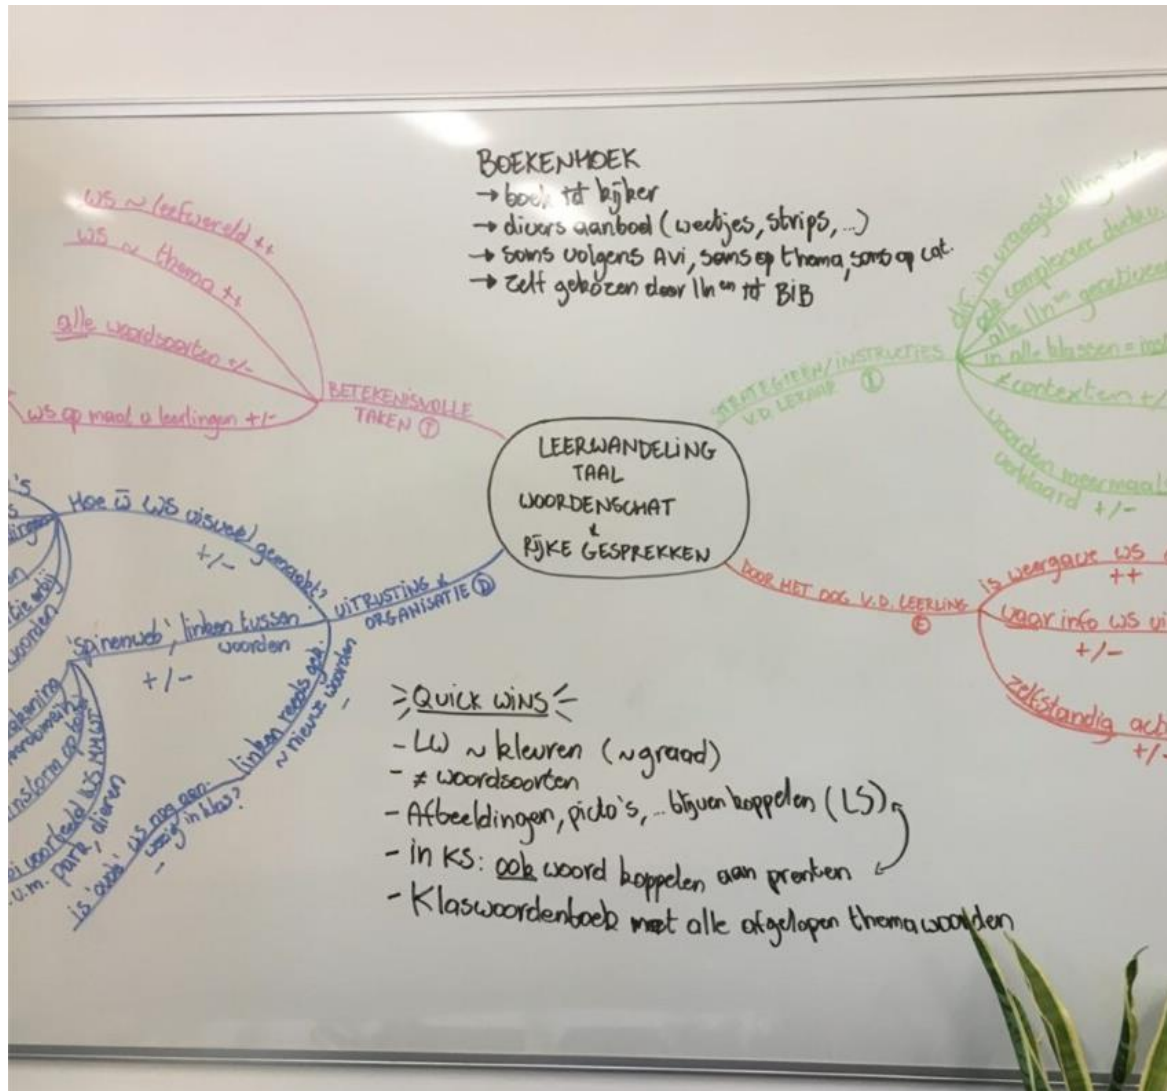 BOEKENHOEK
→ boek tot kijker
→ divers aanbod (weetjes, strips, ...)
→ soms volgens Avi, soms op thema, soms op cat.
→ zelf gekozen door lln en tot BiB
WS ~ leefwereld ++
WS ~ thema ++
alle woordsoorten +/-
WS op maat v leerlingen +/-
BETEKENISVOLLE
TAKEN Ⓣ
LEERWANDELING
TAAL
WOORDENSCHAT
&
RIJKE GESPREKKEN
STRATEGIEËN/INSTRUCTIES
V.D. LERAAR Ⓘ
div. in vraagstelling +/-
ook complexere
alle lln en
in alle klassen =
≠ contexten +/
woorden meermaals
verklaard +/-
DOOR HET OOG V.D. LEERLING
Ⓔ
is weergave WS
++
waar info WS
+/-
zelfstandig
+/-
UITRUSTING &
ORGANISATIE Ⓓ
Hoe w̄ WS visueel gemaakt?
+/-
'spinenweb', linken tussen
woorden
+/-
linken reeds gek.
~ nieuwe woorden
-
is 'oude' WS nog aan-
wezig in klas?
-
's
woorden
u.m. park, dieren
QUICK WINS
- LW ~ kleuren (~graad)
- ≠ woordsoorten
- Afbeeldingen, picto's, ... blijven koppelen (LS)
- in KS: ook woord koppelen aan prenten
- Klaswoordenboek met alle afgelopen themawoorden